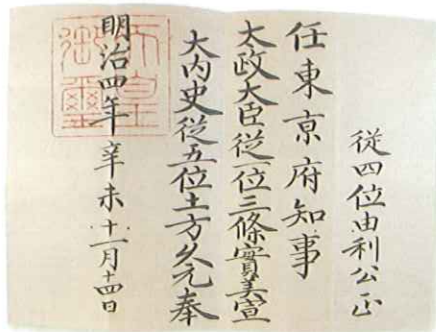 從四位由利公正
任東京府知事
太政大臣從一位三條實美宣
大内史從五位土方久元奉
明治四年辛未十一月十四日
天皇御璽